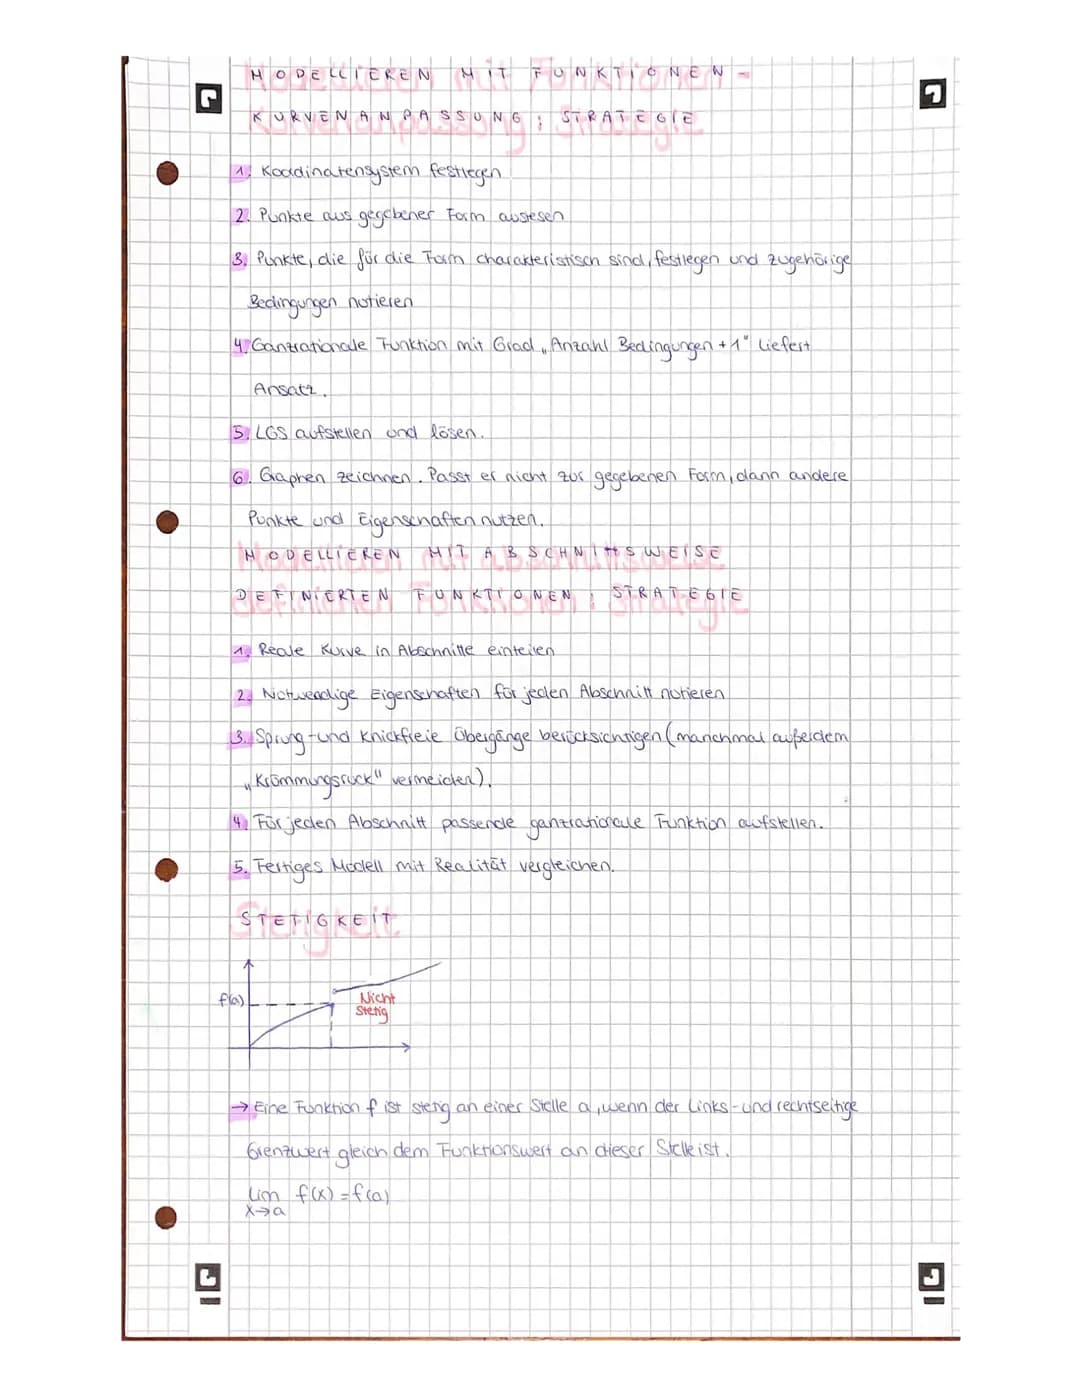 MODELLIEREN MIT FUNKTIONEN -
KURVENANPASSUNG: STRATEGIE
1. Koordinatensystem festlegen
2. Punkte aus gegebener Form auslesen
3. Punkte, die für die Form charakteristisch sind, festlegen und zugehörige
Bedingungen notieren
4. Ganzrationale Funktion mit Grad „Anzahl Bedingungen + 1" liefert
Ansatz.
5. LGS aufstellen und lösen.
6. Graphen zeichnen. Passt er nicht zur gegebenen Form, dann andere
Punkte und Eigenschaften nutzen.
MODELLIEREN MIT ABSCHNITTSWEISE
DEFINIERTEN FUNKTIONEN: STRATEGIE
1. Reale Kurve in Abschnitte einteilen
2. Notwendige Eigenschaften für jeden Abschnitt notieren
3. Sprung- und Knickfreie Übergänge berücksichtigen (manchmal außerdem
„Krümmungsruck" vermeiden).
4. Für jeden Abschnitt passende ganzrationale Funktion aufstellen.
5. Fertiges Modell mit Realität vergleichen.
STETIGKEIT
f(a)
Nicht
Stetig
→ Eine Funktion f ist stetig an einer Stelle a, wenn der Links- und rechtseitige
Grenzwert gleich dem Funktionswert an dieser Stelle ist.
lim f(x) = f(a)
x→a